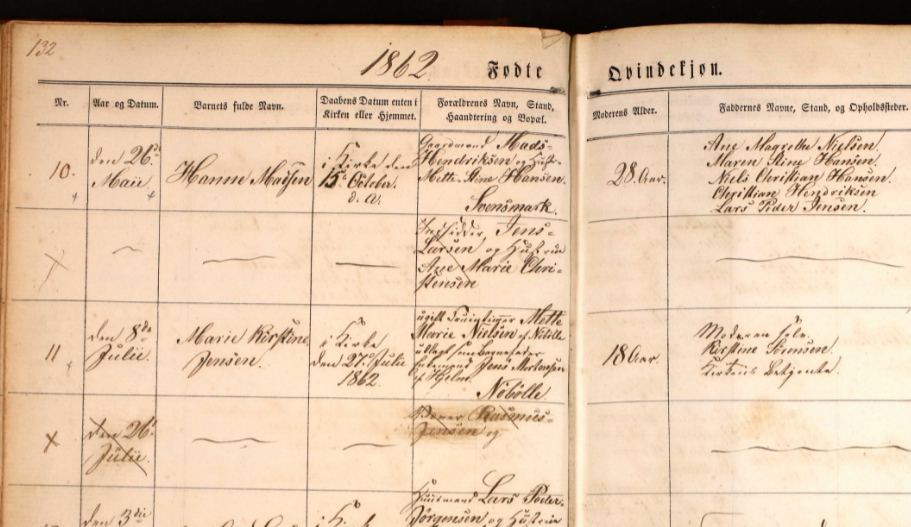 132
1862 Fødte Qvindekjøn.
Nr. Aar og Datum. Barnets fulde Navn. Daabens Datum enten i Kirken eller Hjemmet. Forældrenes Navn, Stand, Haandtering og Bopæl. Moderens Alder. Faddernes Navne, Stand, og Opholdssteder.
10.
den 26de
Maii
Hanne Madsen
i Kirke den
15de October.
d. A.
Gaardmand Mads
Hendriksen og Hust.
Mette Stine Hansen.
Svensmark.
28 Aar.
Ane Magrethe Nielsen.
Maren Stine Hansen.
Niels Christian Hansen.
Christian Hendriksen
Lars Peder Jensen.
Indsidder Jens
Larsen og Hustrue
Ane Marie Chri-
stensen
11
den 8de
Julii.
Marie Kirstine
Jensen.
i Kirke
den 27de Julii
1862.
ugift Mette
Marie Nielsen af Nöbölle
udlagt som Barnefader
Jens Mortensen
af Hjelm.
Nöbölle
18 Aar.
Moderen selv.
Kirstine Sörensen.
Kirkens Betjente.
den 26de
Julii.
Rasmus
Jensen og
den 3die
i Kirke
Huusmand Lars Peder
Jörgensen og Hustrue